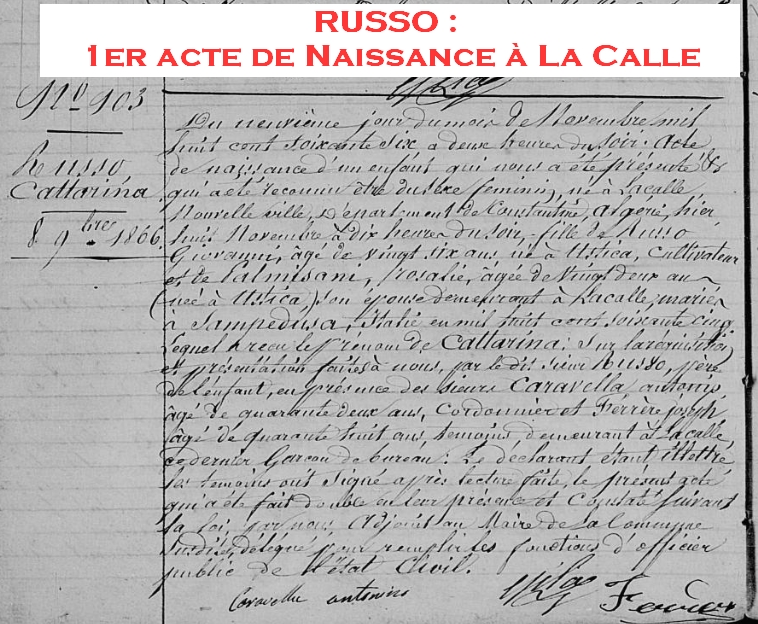 RUSSO :
1ER ACTE DE NAISSANCE À LA CALLE
No 903
Russo
Cattarina
8 9bre 1866
Du neuvième jour du mois de Novembre mil
huit cent soixante six à deux heures du soir. Acte
de naissance d'un enfant qui nous a été présenté &
qui a été reconnu être du sexe feminin, né à Lacalle,
Nouvelle ville, Département de Constantine, Algérie, hier
huit Novembre à dix heures du soir, fille de Russo
Giovanni, âgé de vingt six ans, né à Ustica, Cultivateur
et de Palmisani, Rosalie, âgée de vingt deux ans
(née à Ustica,) son épouse demeurant à Lacalle, mariés
à Lampedusa, Italie en mil huit cent soixante cinq
Lequel a reçu le prénom de Cattarina. Sur la
et présentation faites à nous, par le dit sieur Russo, père
de l'enfant, en présence des sieurs Caravella, antonio,
âgé de quarante deux ans, Cordonnier et Ferrère joseph
âgé de quarante huit ans temoins demeurant à Lacalle,
ce dernier Garçon de bureau. Le declarant étant illettré,
les temoins ont signé après lecture faite, le présent acte
qui a été fait double en leur présence et Constaté suivant
la loi, par nous Adjoint au Maire de la Commune
susdite, délégué pour remplir les fonctions d'officier
public de l'état Civil.
Caravella antonino